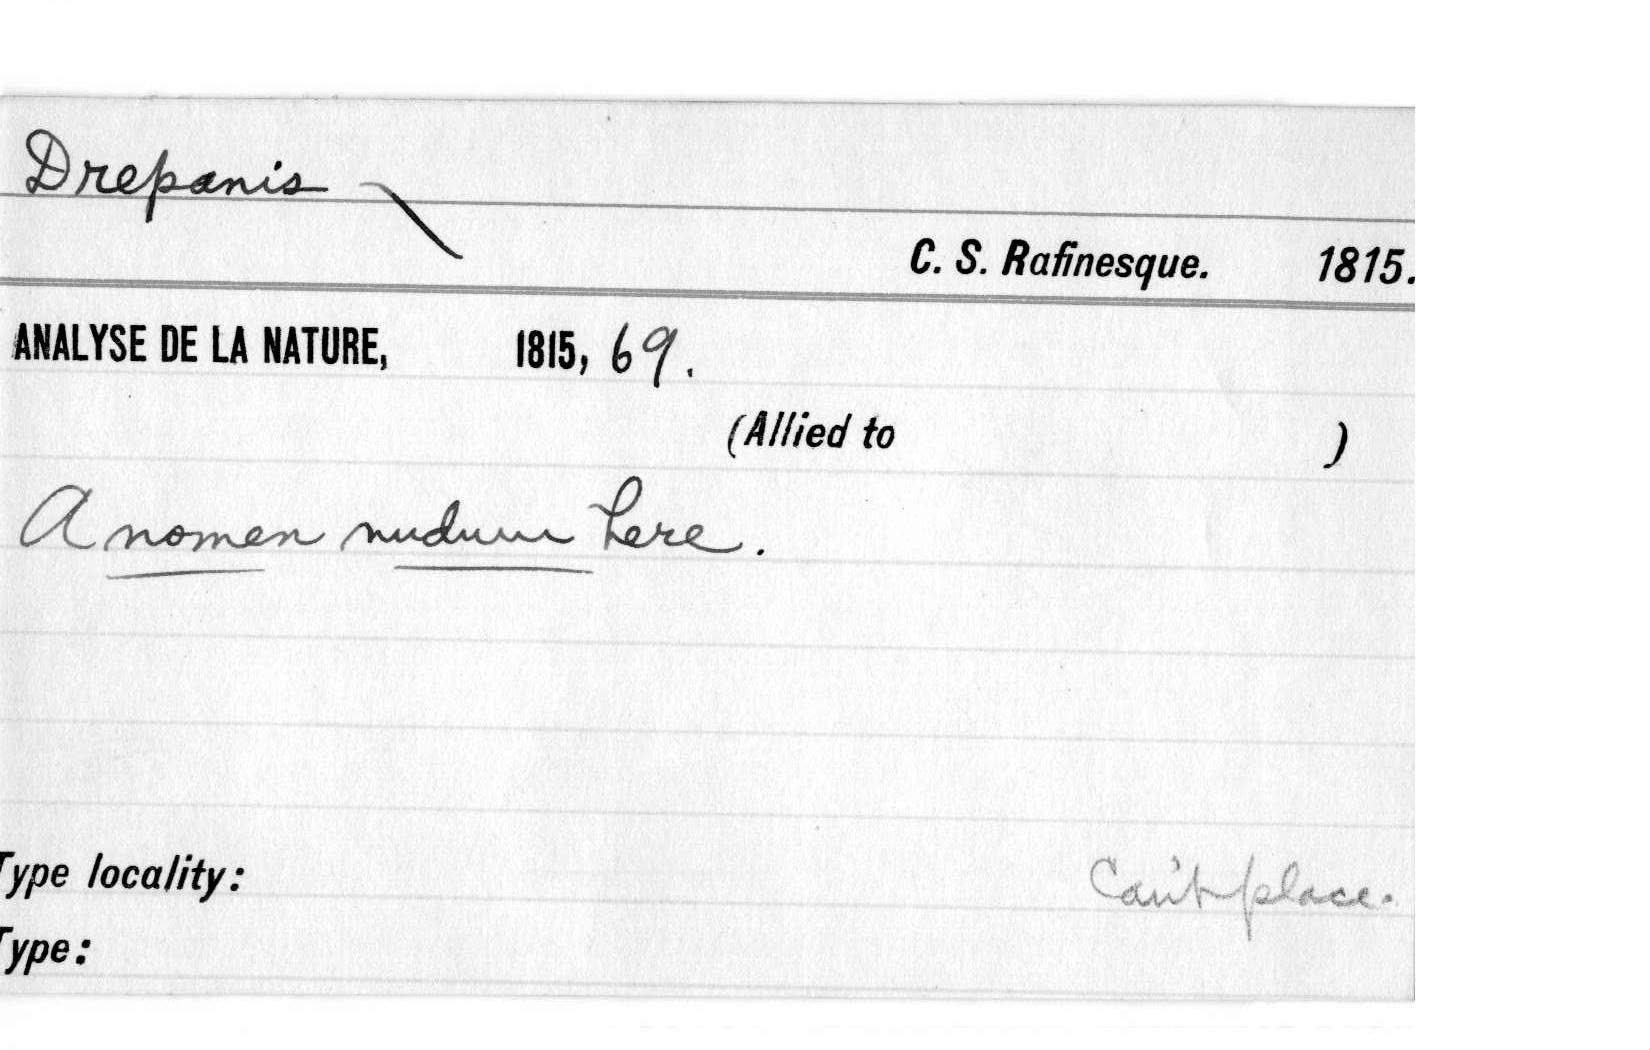 Drepanis
C. S. Rafinesque. 1815.
ANALYSE DE LA NATURE, 1815, 69.
(Allied to )
A nomen nudum here.
Type locality: Can't place.
Type: